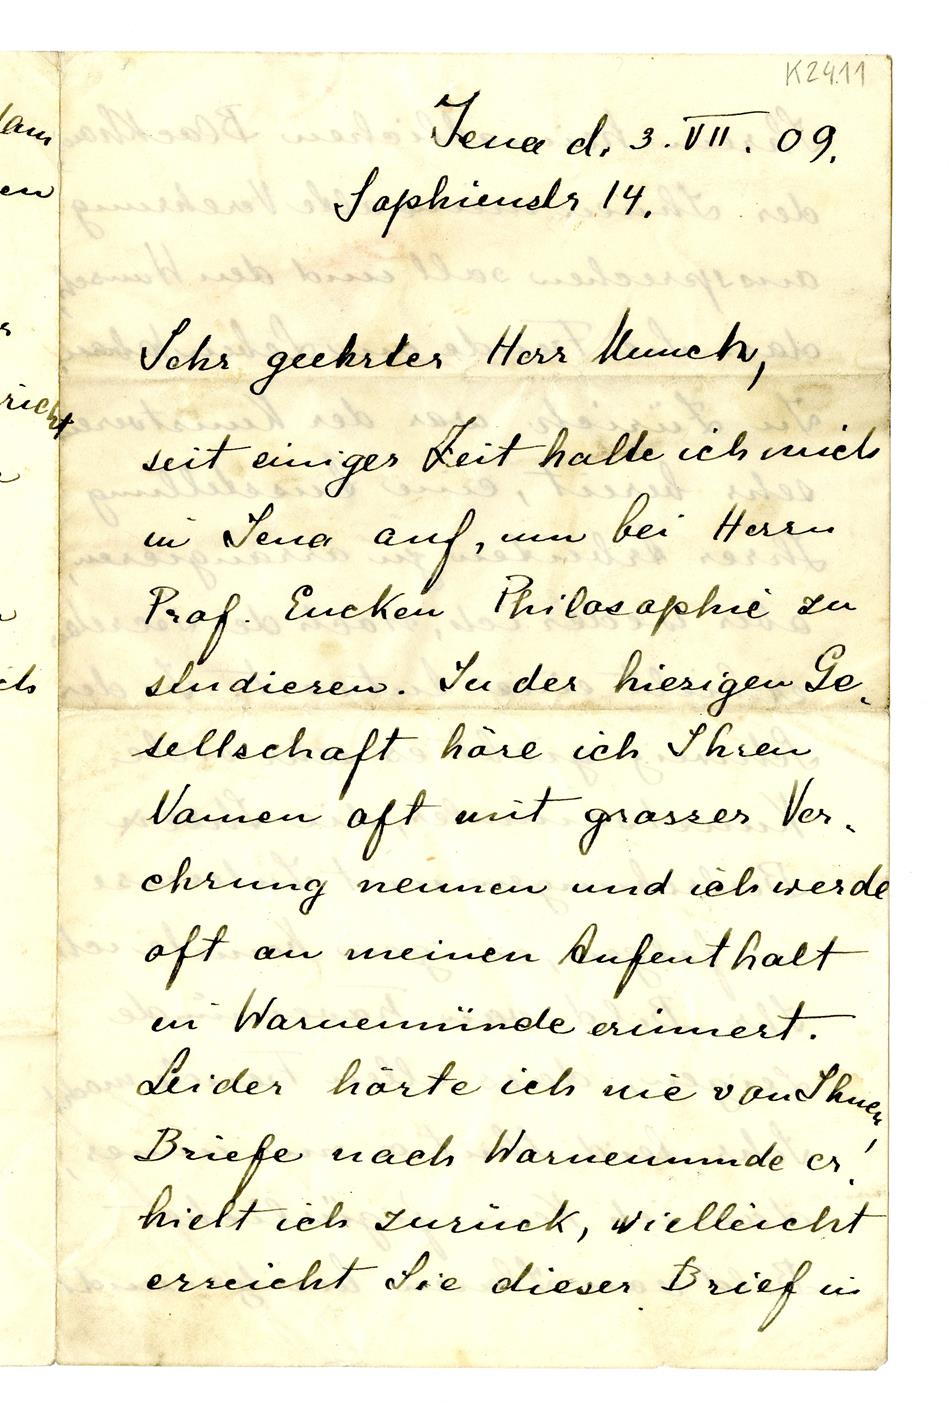 K2411
Jena d. 3. VII. 09.
Sophienstr 14.
Sehr geehrter Herr Munch,
seit einiger Zeit halte ich mich
in Jena auf, um bei Herrn
Prof. Eucken Philosophie zu
studieren. In der hiesigen Ge-
sellschaft höre ich Ihren
Namen oft mit grosser Ver-
ehrung nennen und ich werde
oft an meinen Aufenthalt
in Warnemünde erinnert.
Leider hörte ich nie von Ihnen,
Briefe nach Warnemünde er-
hielt ich zurück, vielleicht
erreicht Sie dieser Brief in